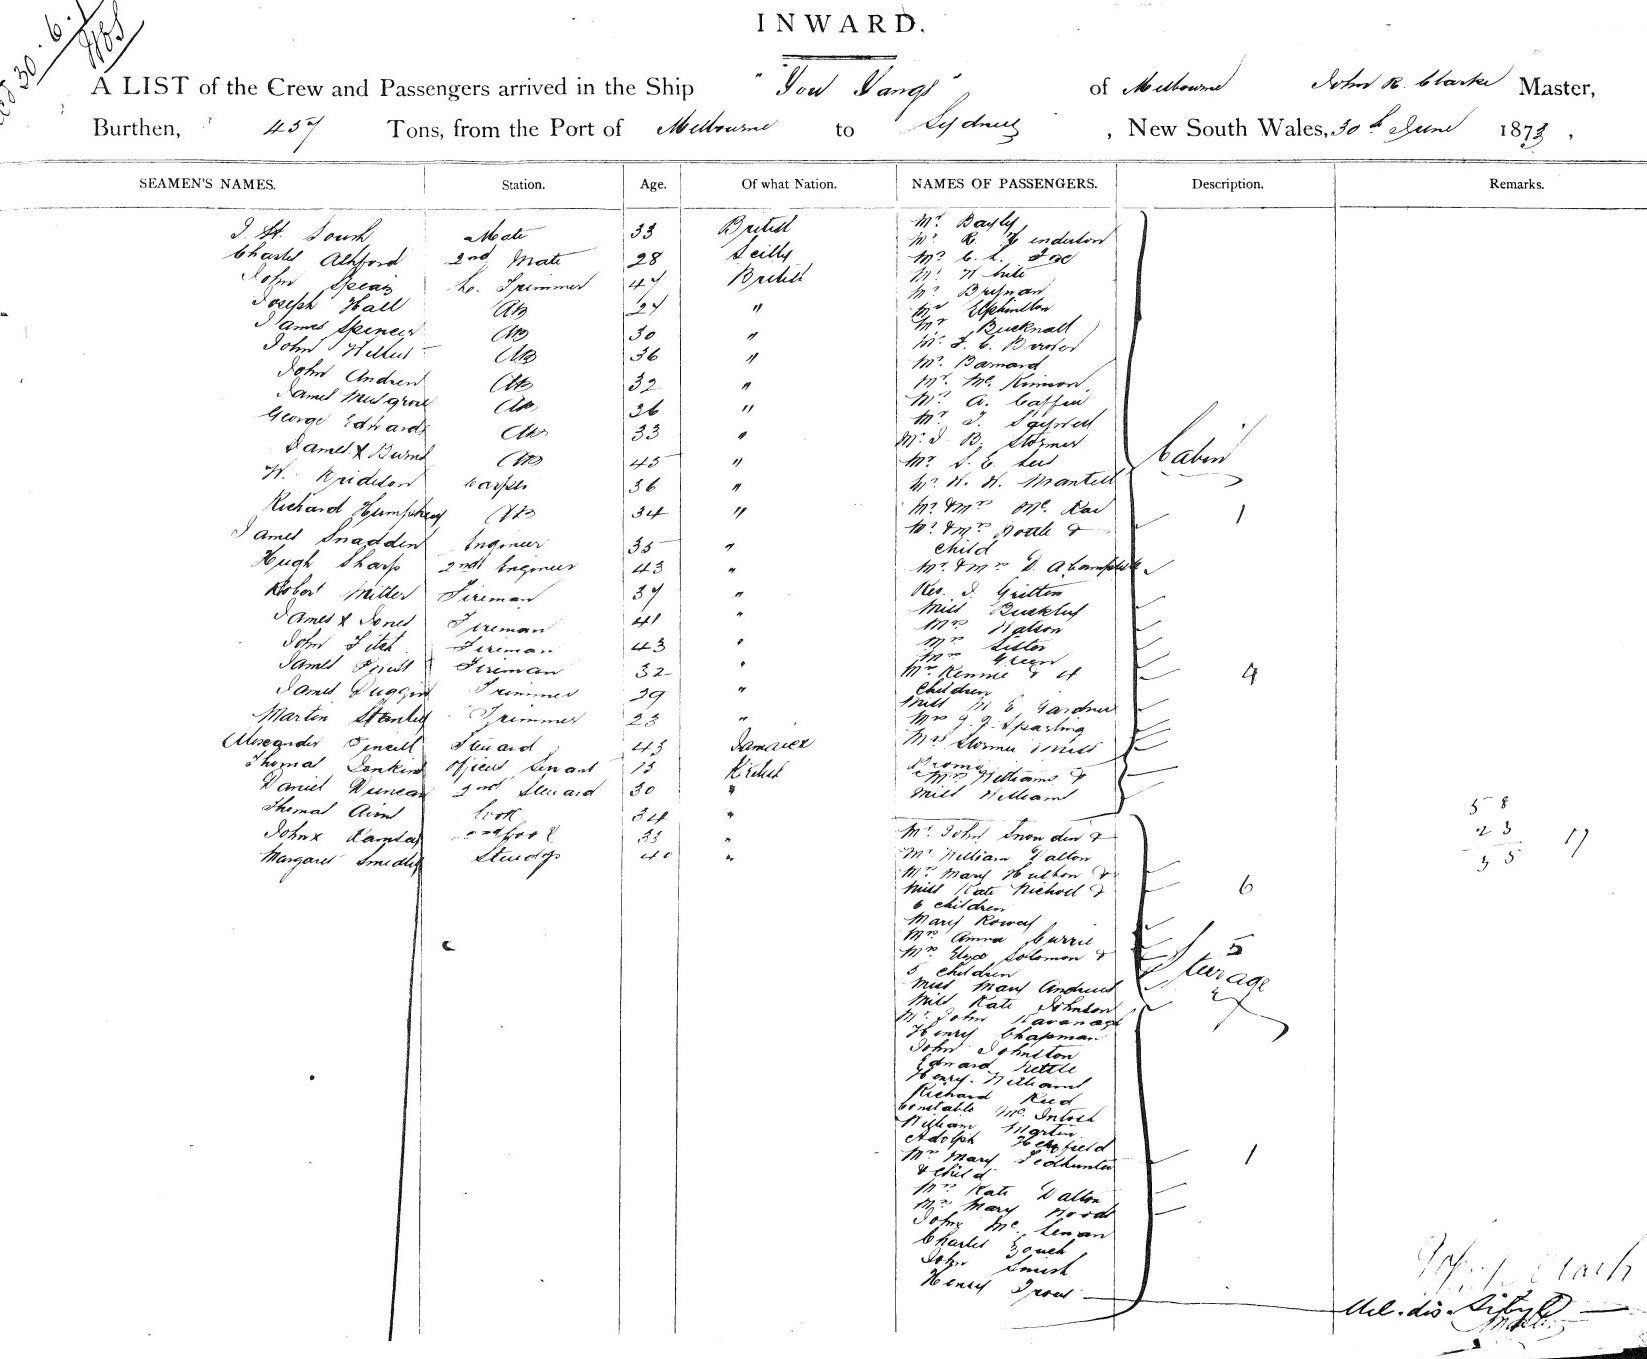 30.6.
INWARD.
A LIST of the Crew and Passengers arrived in the Ship "You Yangs" of Melbourne John R. Clarke Master,
Burthen, 457 Tons, from the Port of Melbourne to Sydney, New South Wales, 30th June 1873,
SEAMEN'S NAMES. Station. Age. Of what Nation. NAMES OF PASSENGERS. Description. Remarks.
Mate 33 British
Charles Ashford 2nd Mate 28 Scilly
John Spiers L. Trimmer 47 British
Joseph Hall AB 27 "
James Spencer AB 30 "
John AB 36 "
John Andrew AB 32 "
James Musgrove AB 26 "
George Edwards AB 33 "
James x Burns AB 45 "
W. 36 "
Richard Humphrey AB 34 "
James Snadden Engineer 35 "
Hugh Sharp 2nd Engineer 43 "
Robert Miller Fireman 37 "
James x Jones Fireman 41 "
John Fitch Fireman 43 "
James Fireman 32 "
James Duggin Trimmer 29 "
Martin Stanley Trimmer 23 "
Alexander Steward 43 Jamaica
Thomas Jenkins Officers Servant 15 British
Daniel Duncan 2nd Steward 30 "
Thomas Cook 34 "
John x Ramsay 2nd Cook 33 "
Margaret Smedley Stewdss 40 "
Mr. Bayly
Mr. R. Henderson
Mr. C. L.
Mr. White
Mr. Bryman
Mr Elphinston
Mr Bucknall
Mr. F. C.
Mr. Barnard
Mr. Mc. Kinnon
Mr. A. Caffin
Mr T. Saywell
Mr. J. B. Stormer
Mr. S. E. Lees
Mr. W. W. Mantell
Mr. & Mrs Mc. Kae
Mr. & Mrs &
child 1
Mr. & Mrs D. A Campbell
Rev. J. Grittin
Miss Buckley
Mrs Watson
Mrs Sister
Mrs Green
Mrs Rennie & 4
children 4
Miss M E Gardner
Mrs G. G. Sparling
Mrs Stormer Miss
Mrs Williams &
Miss Williams
Cabin
Mr. John Snowden &
Mr. William Dalton
Mrs Mary &
Miss Kate Nicholl &
6 children 6
Mary Rowey
Mrs Anna Currie
Mrs Eliza Solomon & 5
5 children
Miss Mary Andrews
Miss Kate Johnson
Mr. John Kavanagh
Henry Chapman
John Johnston
Edward Kettle
Henry. Williams
Richard Reed
Constable Mc. Intosh
William Martin
Adolph
Mrs Mary Todhunter
& child 1
Mrs Kate Dalton
Mrs Mary Wood
John Mc. Lenan
Charles Gouch
John Smith
Henry Trout
Sturage
58
23
35 17